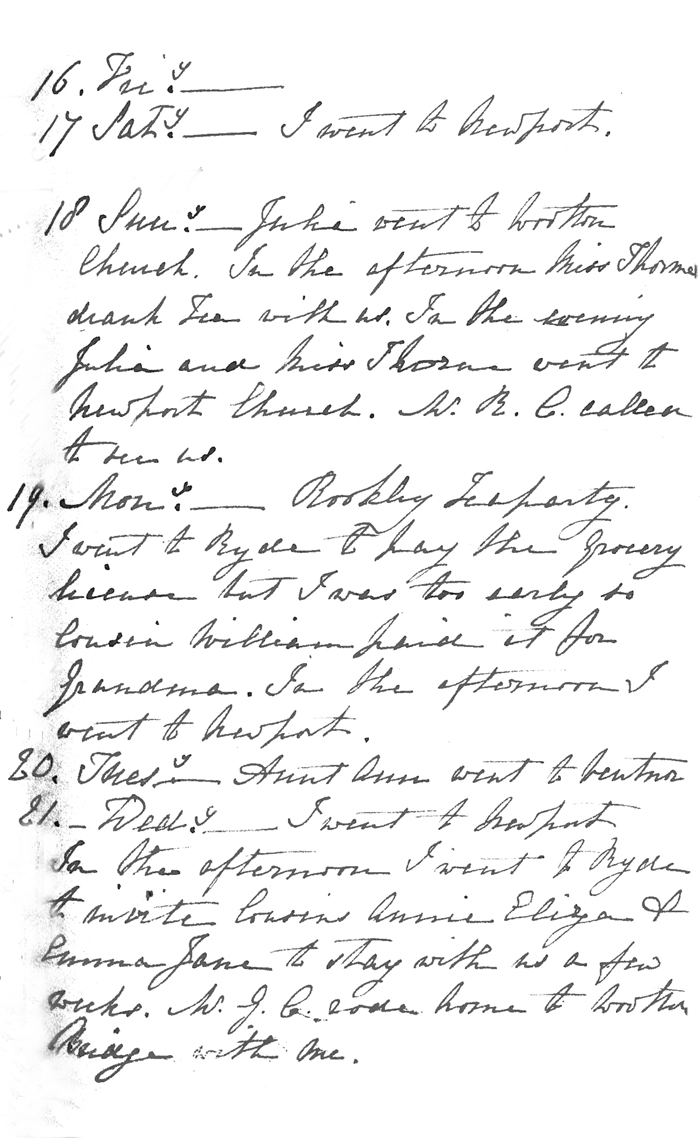 16. Fri.y ——
17 Sat.y —— I went to Newport.
18 Sun.y — Julia went to Wootton
Church. In the afternoon Miss Thorne
drank Tea with us. In the evening
Julia and Miss Thorne went to
Newport Church. Mr. R. C. called
to see us.
19. Mon.y —— Rookley Teaparty.
I went to Ryde to pay the Grocery
license but I was too early so
Cousin William paid it for
Grandma. In the afternoon I
went to Newport.
20. Tues.y — Aunt Ann went to Ventnor
21. – Wed.y —— I went to Newport
In the afternoon I went to Ryde
to invite Cousins Annie Eliza &
Emma Jane to stay with us a few
weeks. Mr. J. C. rode home to Wootton
Bridge with me.